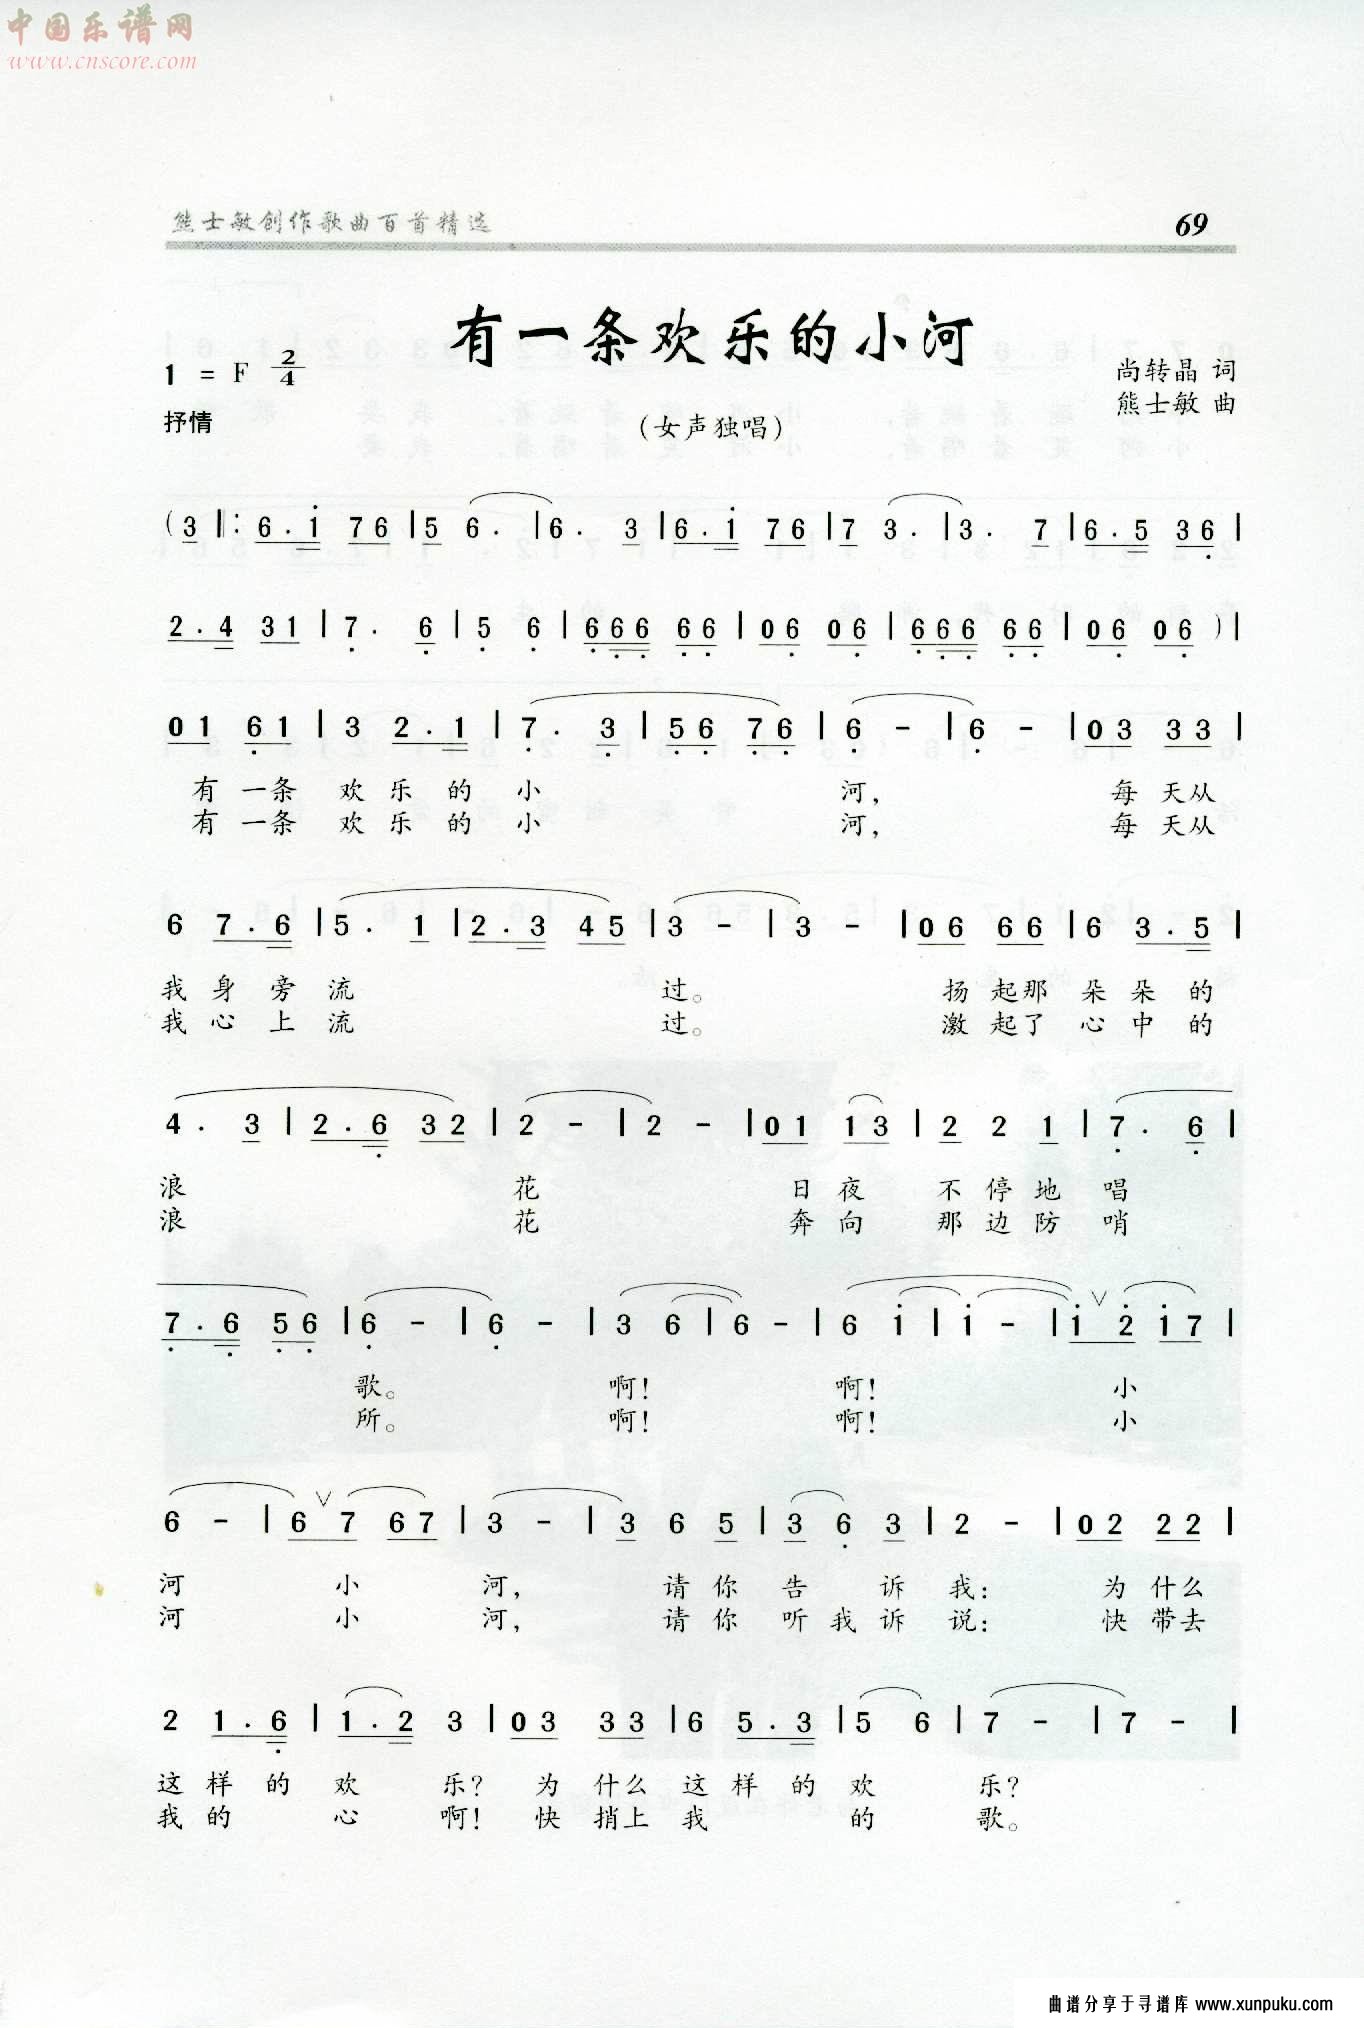 中国乐谱网
www.cnscore.com
熊士敏創作歌曲百首精选 69
有一条欢乐的小河
1 = F 2/4
尚转晶 词
抒情
熊士敏 曲
（女声独唱）
( 3 ‖: 6 . i 7 6 | 5 6 . | 6 . 3 | 6 . i 7 6 | 7 3 . | 3 . 7 | 6 . 5 3 6 |
2 . 4 3 1 | 7 . 6 | 5 6 | 6 6 6 6 6 | 0 6 0 6 | 6 6 6 6 6 | 0 6 0 6 ) |
0 1 6 1 | 3 2 . 1 | 7 . 3 | 5 6 7 6 | 6 - | 6 - | 0 3 3 3 |
有 一条 欢 乐 的 小 河， 每 天从
有 一条 欢 乐 的 小 河， 每 天从
6 7 . 6 | 5 . 1 | 2 . 3 4 5 | 3 - | 3 - | 0 6 6 6 | 6 3 . 5 |
我 身 旁 流 过。 扬 起那 朵 朵 的
我 心 上 流 过。 激 起了 心 中 的
4 . 3 | 2 . 6 3 2 | 2 - | 2 - | 0 1 1 3 | 2 2 1 | 7 . 6 |
浪 花 日 夜 不 停 地 唱
浪 花 奔 向 那 边 防 哨
7 . 6 5 6 | 6 - | 6 - | 3 6 | 6 - | 6 i | i - | i ∨ 2 i 7 |
歌。 啊！ 啊！ 小
所。 啊！ 啊！ 小
6 - | 6 ∨ 7 6 7 | 3 - | 3 6 5 | 3 6 3 | 2 - | 0 2 2 2 |
河 小 河， 请 你 告 诉 我： 为 什么
河 小 河， 请 你 听 我 诉 说： 快 带去
2 1 . 6 | 1 . 2 3 | 0 3 3 3 | 6 5 . 3 | 5 6 | 7 - | 7 - |
这 样 的 欢 乐？ 为 什么 这 样 的 欢 乐？
我 的 心 啊！ 快 捎上 我 的 歌。
曲谱分享于寻谱库 www.xunpuku.com